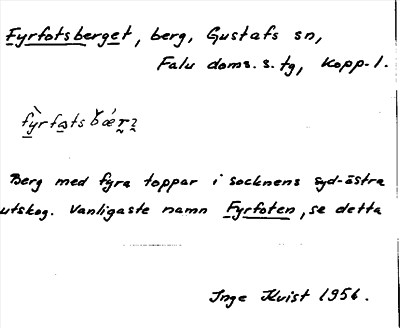 Fyrfotsberget, berg, Gustafs sn,
Falu doms. s. tg, Kopp. l.
Berg med fyra toppar i socknens syd-östra
utskog. Vanligaste namn Fyrfoten, se detta
Inge Kvist 1956.